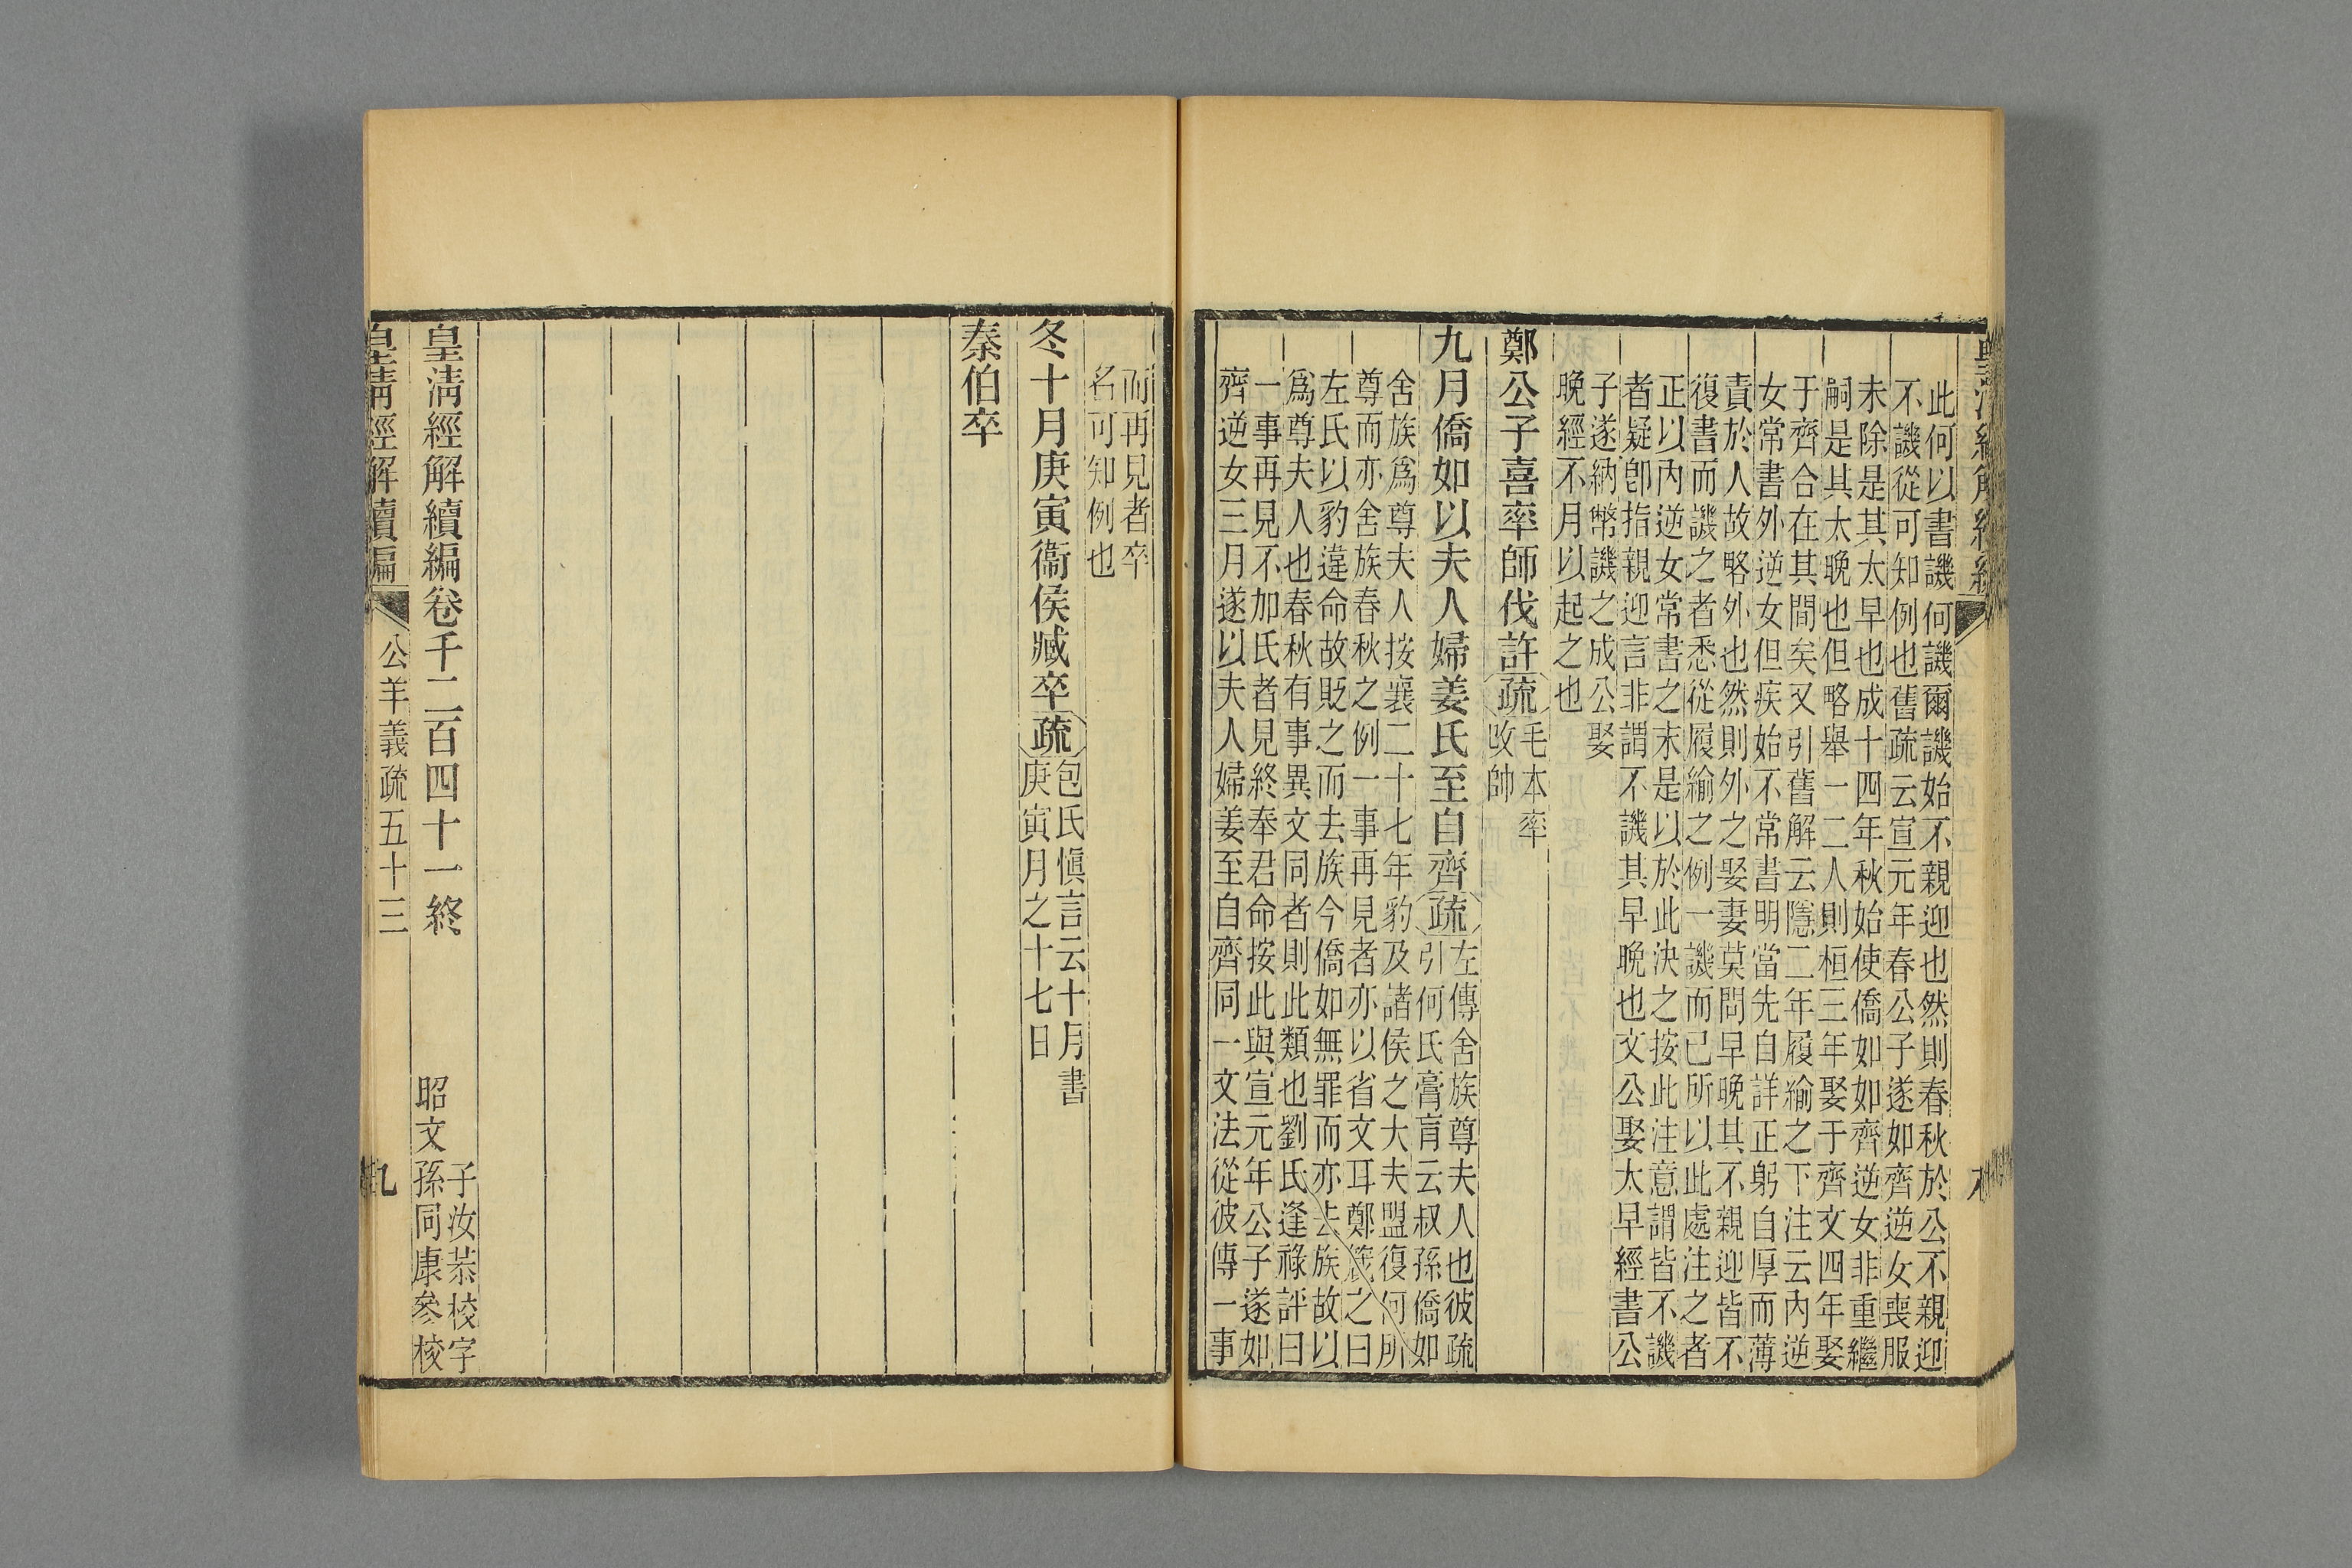 此何以書譏何譏爾譏始不親迎也然則春秋於公不親迎
不譏從可知例也舊疏云宣元年春公子遂如齊逆女喪服
未除是其太早也成十四年秋始使僑如如齊逆女非重繼
嗣是其太晚也但略舉一二人則桓三年娶于齊文四年娶
于齊合在其間矣又引舊解云隱二年履緰之下注云內逆
女常書外逆女但疾始不常書明當先自詳正躬自厚而薄
責於人故略外也然則外之娶妻莫問早晚其不親迎皆不
復書而譏之者悉從履緰之例一譏而已所以此處注之者
正以內逆女常書之末是以於此決之按此注意謂皆不譏
者疑卽指親迎言非謂不譏其早晚也文公娶太早經書公
子遂納幣譏之成公娶
晚經不月以起之也
鄭公子喜率師伐許疏毛本率
改帥
九月僑如以夫人婦姜氏至自齊疏左傳舍族尊夫人也彼疏
引何氏膏肓云叔孫僑如
舍族爲尊夫人按襄二十七年豹及諸侯之大夫盟復何所
尊而亦舍族春秋之例一事再見者亦以省文耳鄭箴之曰
左氏以豹違命故貶之而去族今僑如無罪而亦去族故以
爲尊夫人也春秋有事異文同者則此類也劉氏逢祿評曰
一事再見不加氏者見終奉君命按此與宣元年公子遂如
齊逆女三月遂以夫人婦姜至自齊同一文法從彼傳一事
而再見者卒
名可知例也
冬十月庚寅衞侯臧卒疏包氏愼言云十月書
庚寅月之十七日
秦伯卒
皇淸經解續編卷千二百四十一終
子汝恭校字
昭文孫同康參校
皇淸經解續編
公羊義疏五十三
九